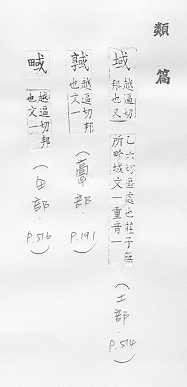 類篇
域
越逼切
邦也又
乙六切區處也莊子無
所畛域文一重音一
(土部 P.514)
越逼切邦
也文一
部 P.191)
㽣
越逼切邦
也文一
(田部 P.516)